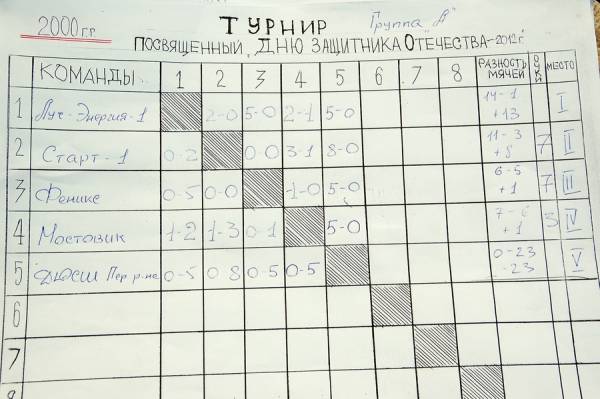 2000г.р.
ТУРНИР Группа "А"
ПОСВЯЩЕННЫЙ ДНЮ ЗАЩИТНИКА ОТЕЧЕСТВА-2012г.
КОМАНДЫ 1 2 3 4 5 6 7 8 РАЗНОСТЬ МЯЧЕЙ ОЧКИ МЕСТО
1 Луч-Энергия-1 2-0 5-0 2-1 5-0 14-1 +13 I
2 Старт-1 0-2 0-0 3-1 8-0 11-3 +8 7 II
3 Феникс 0-5 0-0 1-0 5-0 6-5 +1 7 III
4 Мостовик 1-2 1-3 0-1 5-0 7-6 +1 3 IV
5 ДЮСШ Пер р-на 0-5 0 8 0-5 0-5 0-23 -23 V
6
7
8